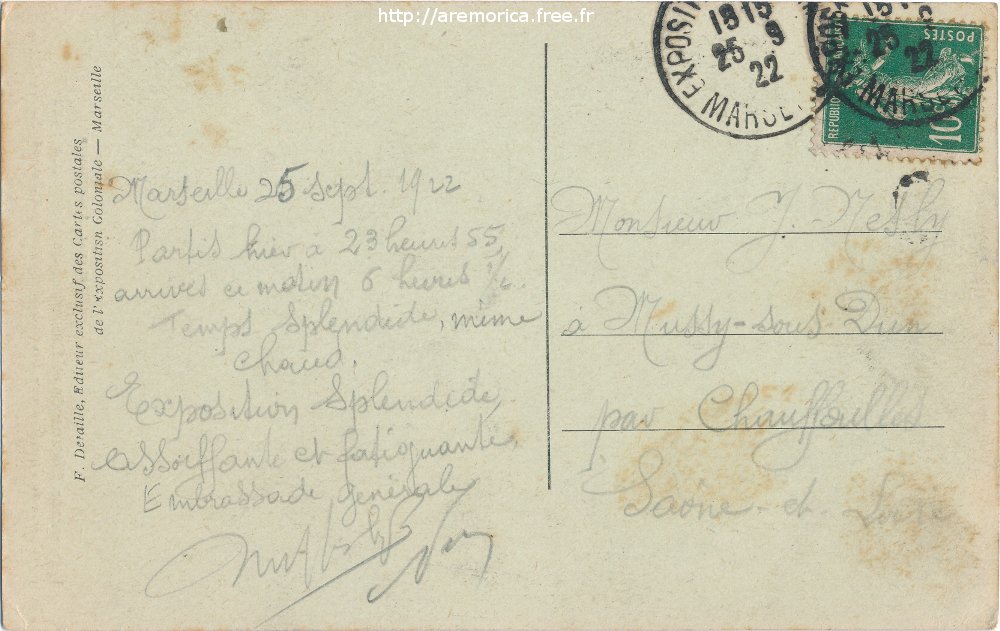 http://aremorica.free.fr
F. Detaille, Editeur exclusif des Cartes postales
de l'Exposition Coloniale — Marseille
Marseille 25 sept. 1922
Partis hier à 23 heures 55,
arrivés ce matin 6 heures ½.
Temps splendide, même
chaud.
Exposition splendide,
assoiffante et fatiguante.
Embrassade générale
EXPOSIT
MARSE
18 15
25 9
22
POSTES
10
Monsieur J.
à Mussy-sous-Dun
par Chauffailles
Saône-et-Loire